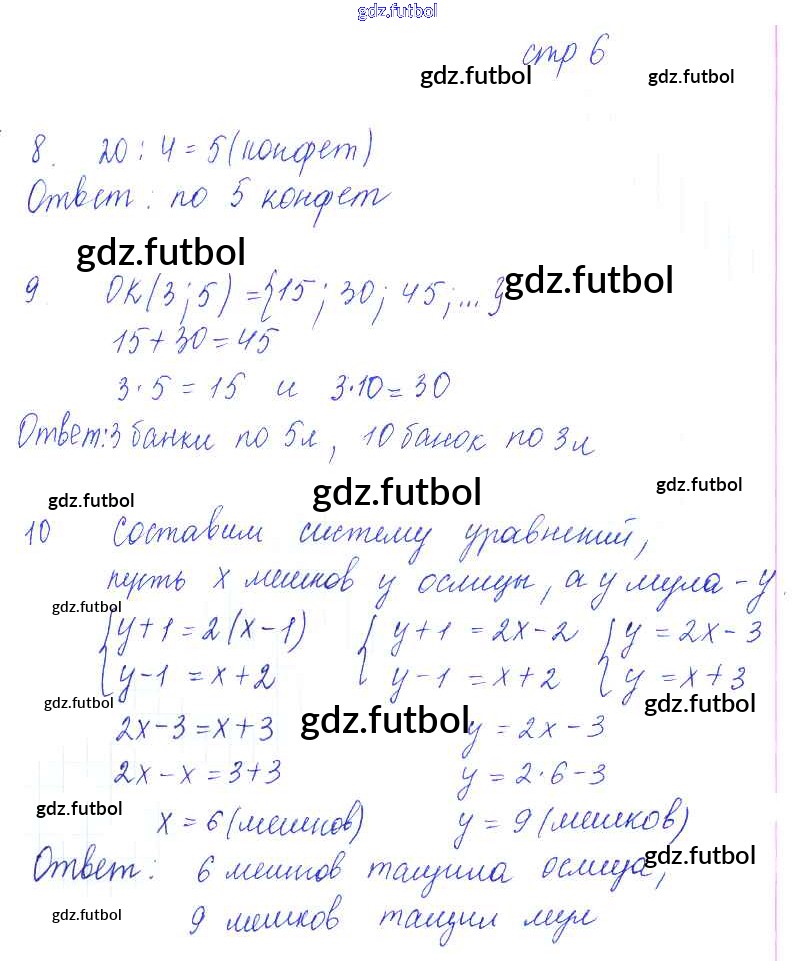 gdz.futbol
стр 6
gdz.futbol gdz.futbol
8. 20 : 4 = 5 (конфет)
Ответ: по 5 конфет
gdz.futbol
9 ОК(3; 5) = {15; 30; 45; ...} gdz.futbol
15 + 30 = 45
3 · 5 = 15 и 3 · 10 = 30
Ответ: 3 банки по 5л, 10 банок по 3л
gdz.futbol gdz.futbol gdz.futbol
10 Составим систему уравнений,
пусть x мешков у ослицы, а у мула - y.
gdz.futbol
{ y + 1 = 2(x - 1) { y + 1 = 2x - 2 { y = 2x - 3
y - 1 = x + 2 y - 1 = x + 2 y = x + 3
gdz.futbol gdz.futbol
2x - 3 = x + 3 gdz.futbol y = 2x - 3
2x - x = 3 + 3 y = 2 · 6 - 3
gdz.futbol x = 6 (мешков) y = 9 (мешков)
Ответ: 6 мешков тащила ослица, gdz.futbol
gdz.futbol 9 мешков тащил мул